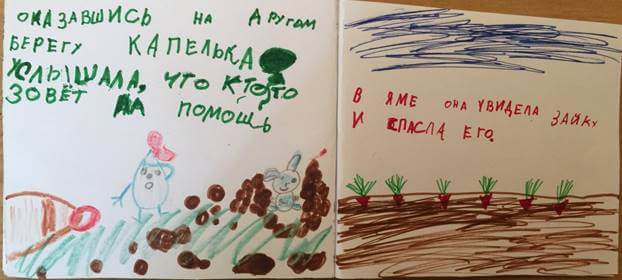 ОКАЗАВШИСЬ НА ДРУГОМ
БЕРЕГУ КАПЕЛЬКА
УСЛЫШАЛА, ЧТО КТО ТО
ЗОВЁТ НА ПОМОЩЬ
В ЯМЕ ОНА УВИДЕЛА ЗАЙКУ
И СПАСЛА ЕГО.